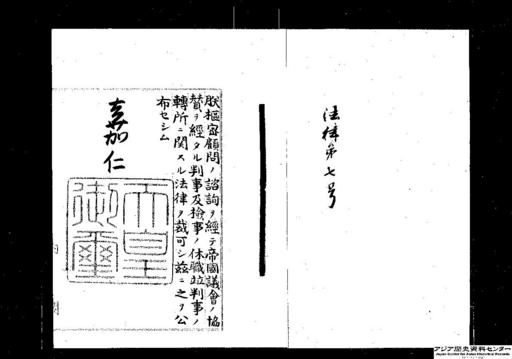 法律第七号
朕樞密顧問ノ諮詢ヲ經テ帝國議會ノ協
賛ヲ經タル判事及檢事ノ休職竝判事ノ
轉所ニ関スル法律ヲ裁可シ茲ニ之ヲ公
布セシム
嘉仁
天皇
御璽
アジア歴史資料センター
Japan Center for Asian Historical Records